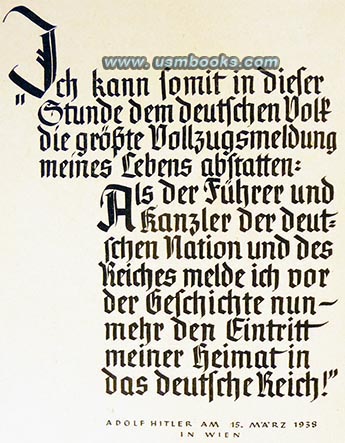 www.usmbooks.com
"Ich kann somit in dieser
Stunde dem deutschen Volk
die größte Vollzugsmeldung
meines Lebens abstatten:
Als der Führer und
Kanzler der deut-
schen Nation und des
Reiches melde ich vor
der Geschichte nun-
mehr den Eintritt
meiner Heimat in
das deutsche Reich!"
ADOLF HITLER AM 15. MÄRZ 1938
IN WIEN